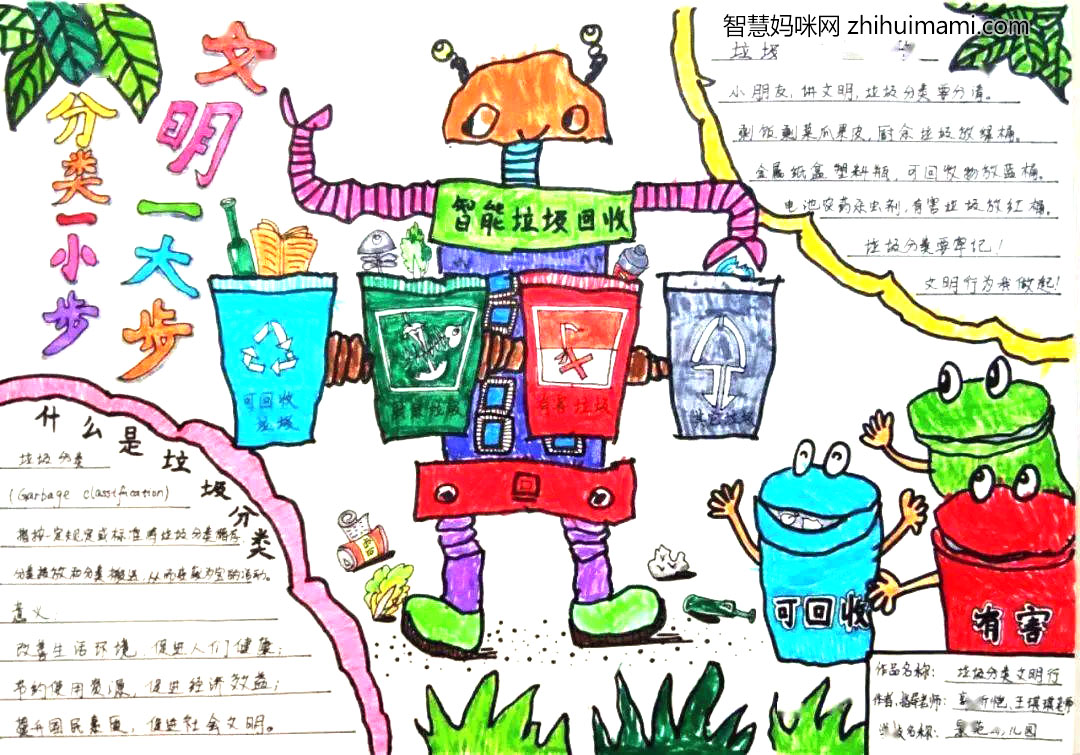 智慧妈咪网 zhihuimami.com
文明一大步
分类一小步
垃圾
小朋友,讲文明,垃圾分类要分清。
剩饭剩菜瓜果皮,厨余垃圾放绿桶。
金属纸盒塑料瓶,可回收物放蓝桶。
电池农药杀虫剂,有害垃圾放红桶。
垃圾分类要牢记!
文明行为我做起!
智能垃圾回收
可回收
垃圾
厨余垃圾
有害垃圾
其它垃圾
什么是垃圾分类
垃圾分类
(Garbage classification)
指按一定规定或标准将垃圾分类储存
分类投放和分类搬运,从而
意义:
改善生活环境,促进人们健康;
节约使用资源,促进经济效益;
提升国民素质,促进社会文明。
可回收
有害
作品名称: 垃圾分类文明行
作者,指导老师: 王琪琪老师
名称: